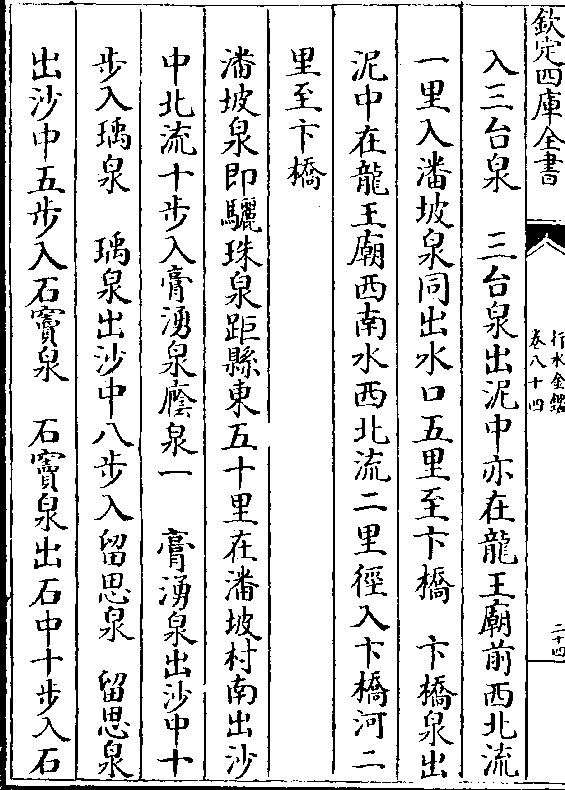 欽定四庫全書
行水金鑑
卷八十四
二十四
入三台泉　三台泉出泥中亦在龍王廟前西北流
一里入潘坡泉同出水口五里至卞橋　卞橋泉出
泥中在龍王廟西南水西北流二里徑入卞橋河二
里至卞橋
潘坡泉即驪珠泉距縣東五十里在潘坡村南出沙
中北流十步入膏湧泉廕泉一　膏湧泉出沙中十
步入瑀泉　瑀泉出沙中八步入留思泉　留思泉
出沙中五步入石竇泉　石竇泉出石中十步入石